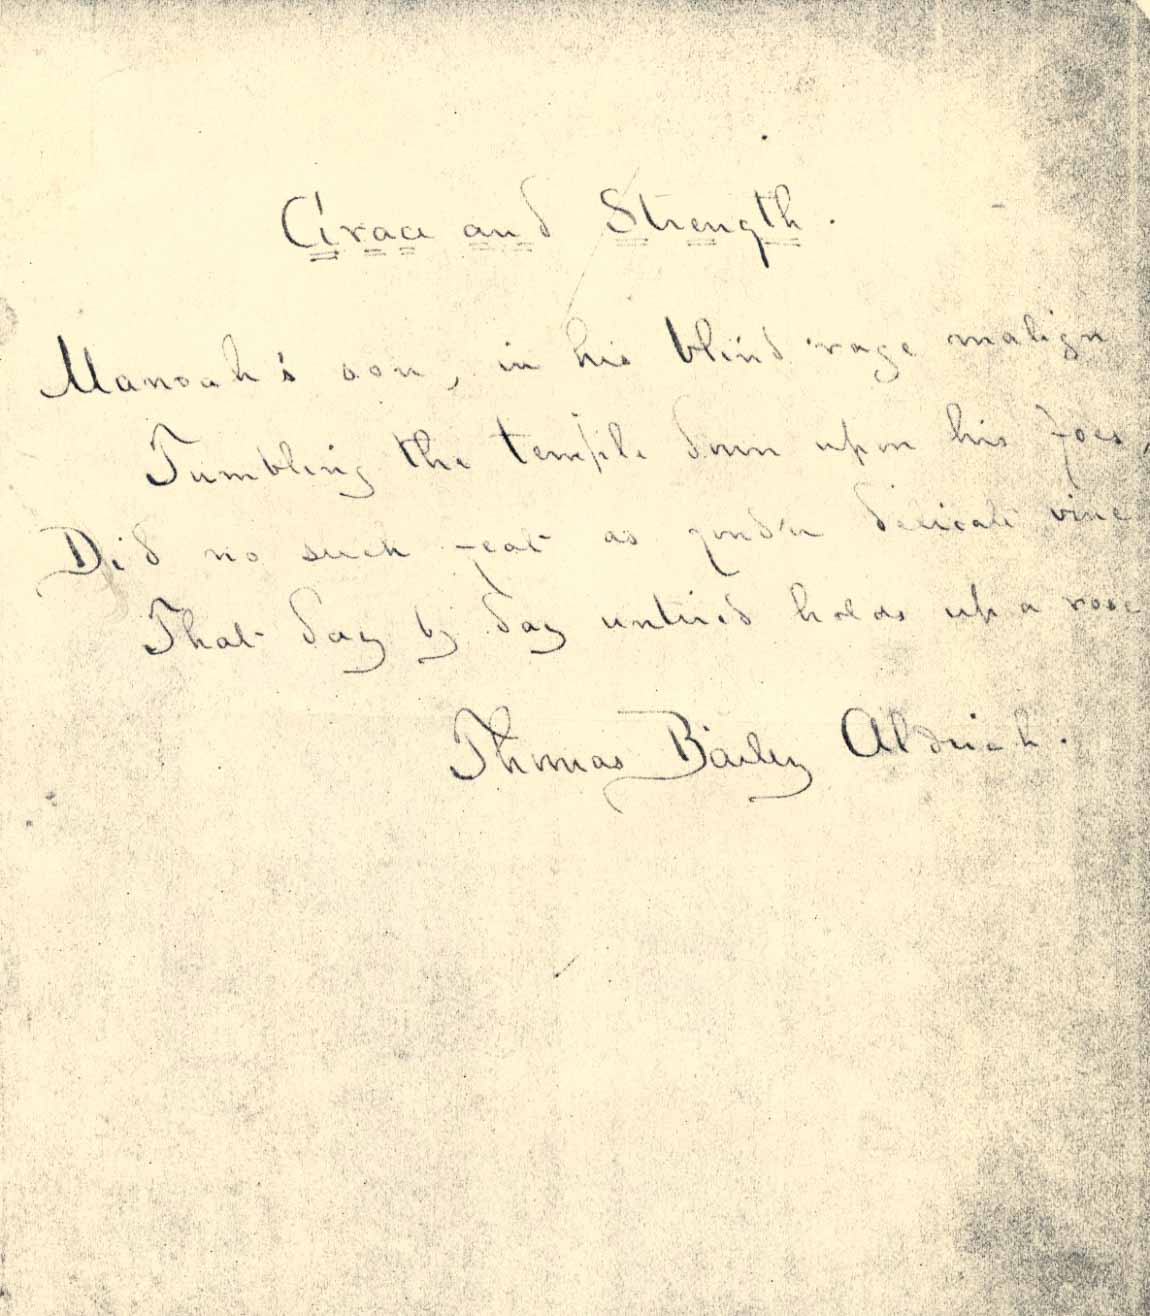 Grace and Strength.
Manoah's son, in his blind rage malign
Tumbling the temple down upon his foes,
Did no such feat as yond'r delicate vine
That day by day untired holds up a rose
Thomas Bailey Aldrich.